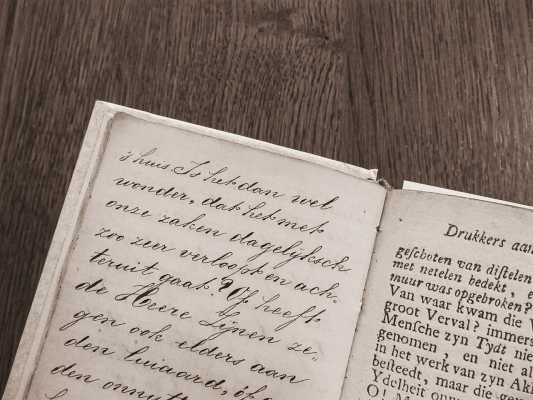 's huis. Is het dan wel
wonder, dat het met
onze zaken dagelijksch
zoo zeer verloopt en ach-
teruit gaat? Of heeft
de Heere Zijnen ze-
gen ook elders aan
den luiaard, óf aan
den onnutt
Drukkers aan
geſchoten van diſtelen
met netelen bedekt, e
muur was opgebroken?
Van waar kwam die V
groot Verval? immers
Menſche zyn Tydt nie
genomen, en niet al
in het werk van zyn Ak
beſteedt, maar die gev
Ydelheit onn
O! M